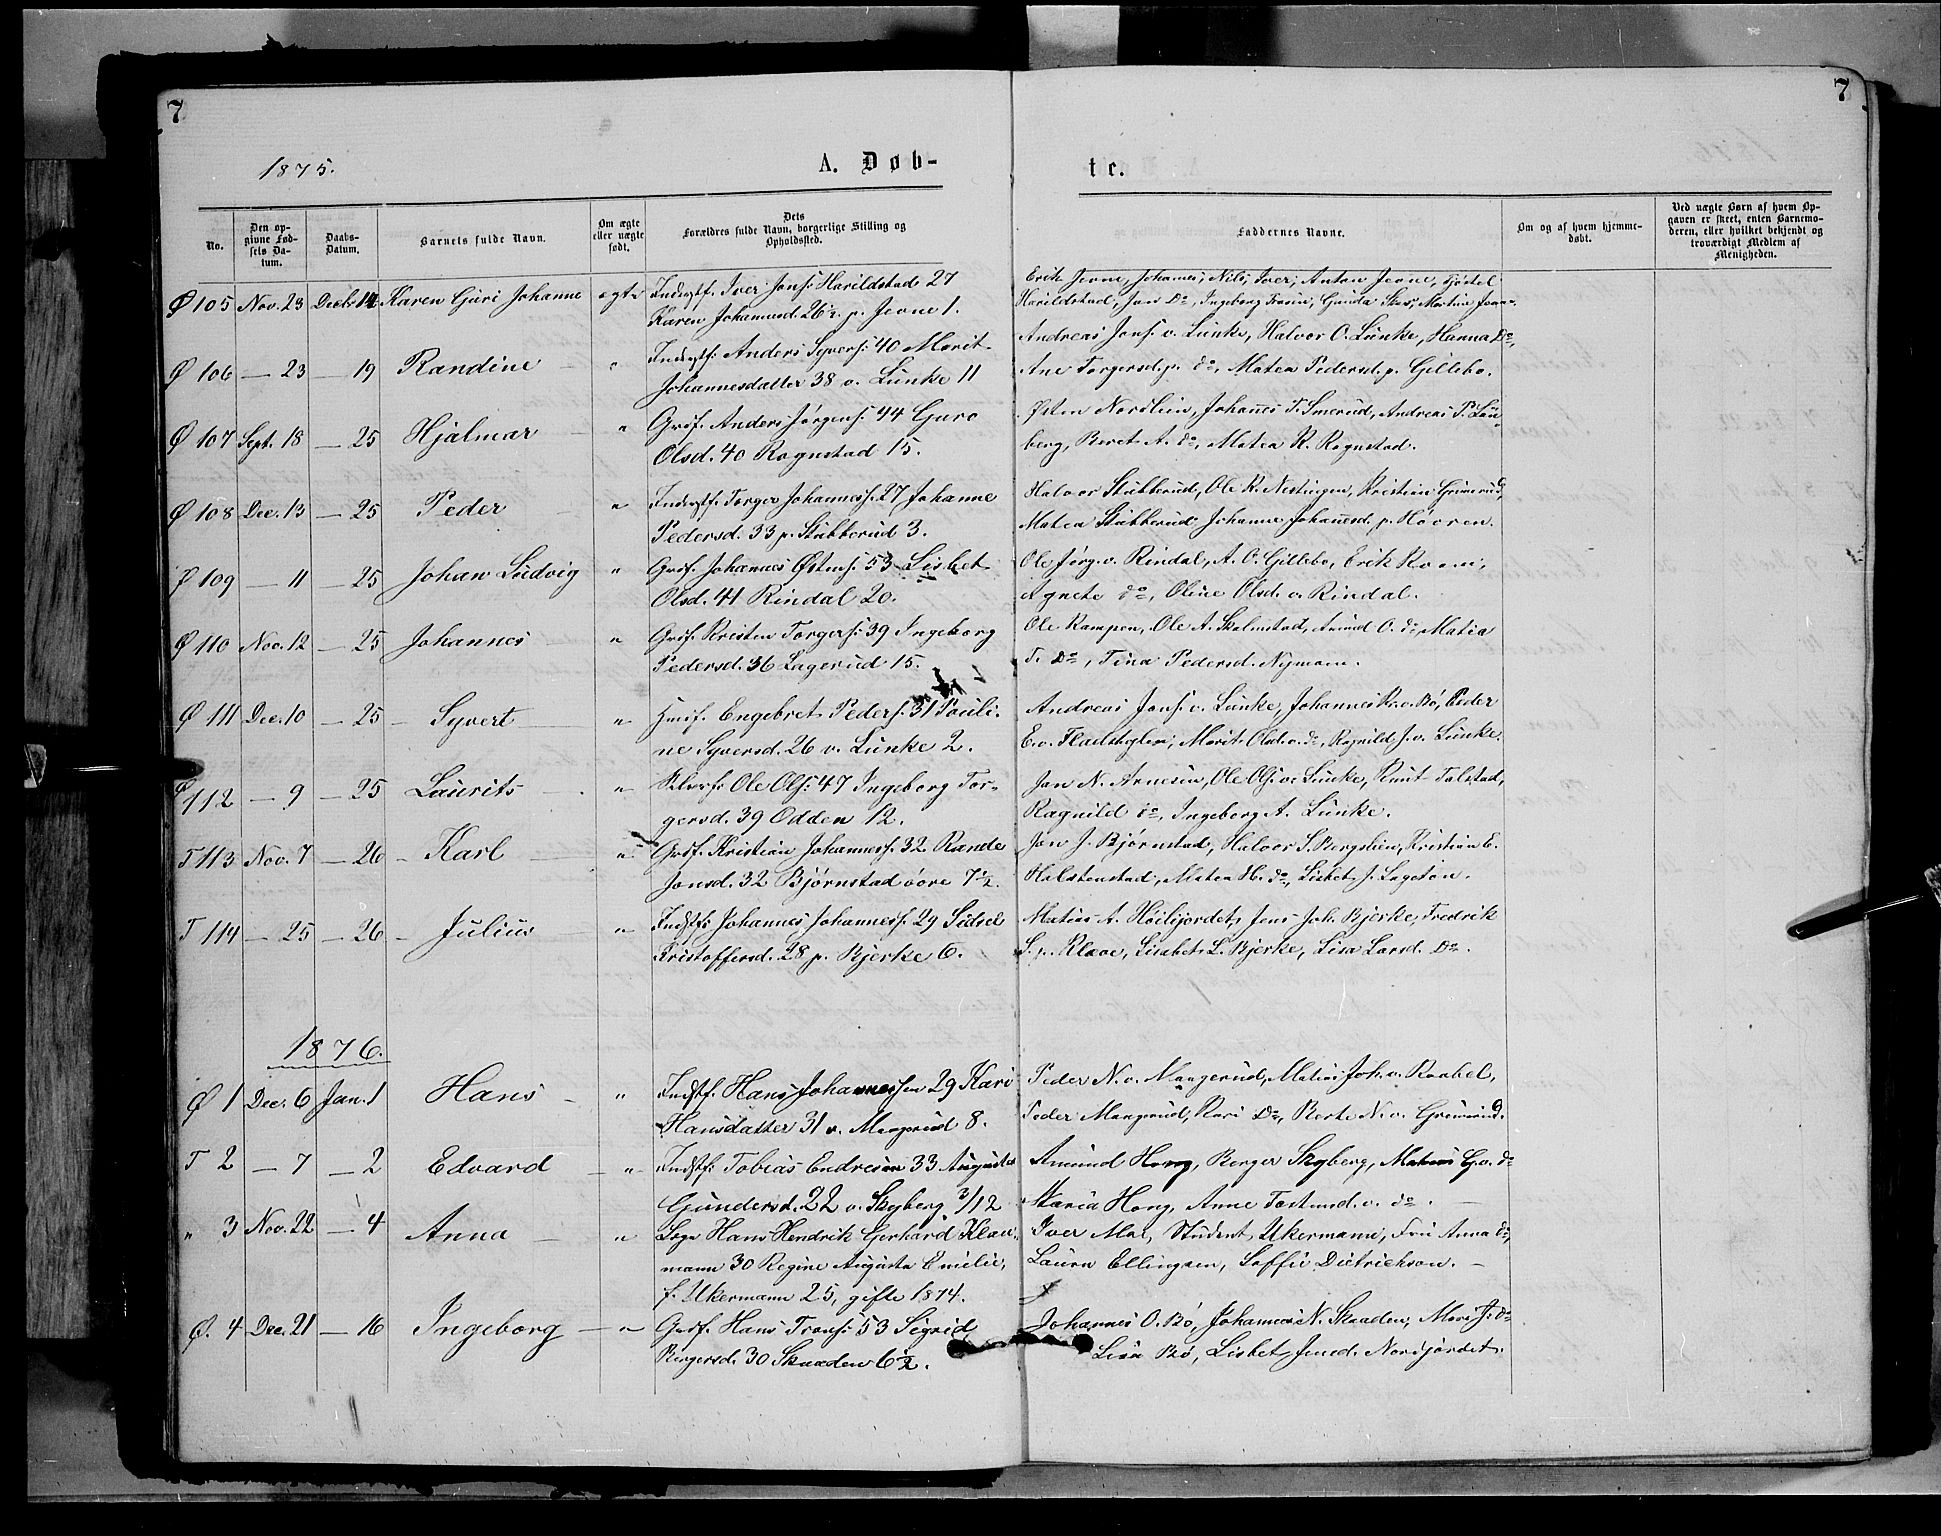 7
7
1875.
A. Døb-
te.
No.
Den op-
givne Fød-
sels Da-
tum.
Daabs-
Datum.
Barnets fulde Navn.
Om ægte
eller uægte
født.
Dets
Forældres fulde Navn, borgerlige Stilling og
Opholdssted.
Faddernes Navne.
Om og af hvem hjemme-
døbt.
Ved uægte Børn af hvem Op-
gaven er skeet, enten Barnemo-
deren, eller hvilket bekjendt og
troværdigt Medlem af
Menigheden.
Ø 105 Nov. 23 Decbr 12 Karen Guri Johanne ægte Indrstf. Iver Jonss. Harildstad 27
Karen Johannesd. 26½ p. Jevne 1.
Erik Jevne, Johannes, Nils, Iver, Anton Jevne, Kjøstel
Harildstad, Jan Do, Ingeborg, Gunda, Martine Jevne.
Ø 106 — 23 — 19 Randine " Indrstf. Anders Syvers. 40 Marit
Johannesdatter 38 v. Lunke 11
Andreas Jons. v. Lunke, Halvor O. Lunke, Hanna Do,
Ane Torgersd. p. do, Matea Pedersd. p. Gillebo.
Ø 107 Sept. 18 — 25 Hjalmar " Grdf. Anders Jørgens. 44 Guro
Olsd. 40 Rognstad 15.
Østen Nordlien, Johannes T. Smerud, Andreas P. Lun-
berg, Beret A. do, Matea R. Rognstad.
Ø 108 Dec. 13 — 25 Peder " Indrstf. Torger Johanness. 27 Johanne
Pedersd. 33 p. Stubberud 3.
Halvor Stubberud, Ole K. Nestingen, Kristian Grimerud,
Matea Stubberud, Johanne Johannesd. p. Hovren.
Ø 109 — 11 — 25 Johan Ludvig " Grdf. Johannes Østens. 53 Lisbet
Olsd. 41 Rindal 20.
Ole Jørg. v. Rindal, A. O. Gillebo, Erik Roen,
Agnete do, Oline Olsd. v. Rindal.
Ø 110 Nov. 12 — 25 Johannes " Grdf. Kristen Torgers. 39 Ingeborg
Pedersd. 36 Lagerud 15.
Ole Kampen, Ole A. Skalmstad, Amund O. do, Matea
T. Do, Tina Pedersd. Nymoen.
Ø 111 Dec. 10 — 25 Syvert " Hmf. Engebret Peders. 31 Pauli-
ne Syversd. 26 v. Lunke 2.
Andreas Jons. v. Lunke, Johannes P. v. Bø, Peder
E. v. Fladstylen, Marit Olsd. v. do, Ragnild J. v. Lunke.
Ø 112 — 9 — 25 Laurits " Slvf. Ole Ols. 47 Ingeborg Tor-
gersd. 39 Odden 12.
Jan N. Arnesen, Ole Ols. v. Lunke, Knut Talstad,
Ragnild do, Ingeborg A. Lunke.
T 113 Nov. 7 — 26 Karl " Grdf. Kristian Johanness. 32 Rande
Jonsd. 32 Bjørnstad øvre 7½.
Jon J. Bjørnstad, Halvor S. Bergslien, Kristian E.
Holstenstad, Matea H. do, Lisbet J.
T 114 — 25 — 26 Julius " Indstf. Johannes Johanness. 29 Sidsel
Kristoffersd. 28 p. Bjerke 6.
Matias A. Høilijordet, Jens Joh. Bjerke, Fredrik
S. p. Klæve, Lisabet L. Bjerke, Lisa Larsd. Do.
1876.
Ø 1 Dec. 6 Jan. 1 Hans " Indstf. Hans Johannessen 29 Kari
Hansdatter 31 v. Mangerud 8.
Peder N. v. Mangerud, Matias Joh. v. Raabel,
Peder Mangerud, Kari Do, Berte N. v. Grimerud.
T 2 — 7 — 2 Edvard " Indstf. Tobias Endresen 33 Augusta
Gundersd. 22 v. Skyberg 3/12
Amund Hong, Berger Skyberg, Matias G. v. do
Maria Hong, Anne Tostensd. v. do.
" 3 Nov. 22 — 4 Anna " Hans Hendrik Gerhard
mann 30 Regine Augusta Emilie,
f. Ukermann 25, gifte 1874.
Iver Moe, Student Ukermann, Fru Anna do,
Laura Ellingsen, Soffie Dietrichson.
Ø. 4 Dec. 21 — 16 Ingeborg " Grdf. Hans Frans. 53 Sigrid
Bergersd. 30 Skaaden 6½.
Johannes O. Bø, Johannes N. Skaaden, Mari J. do
Lisa Bø, Lisbet Jensd. Nordjordet.